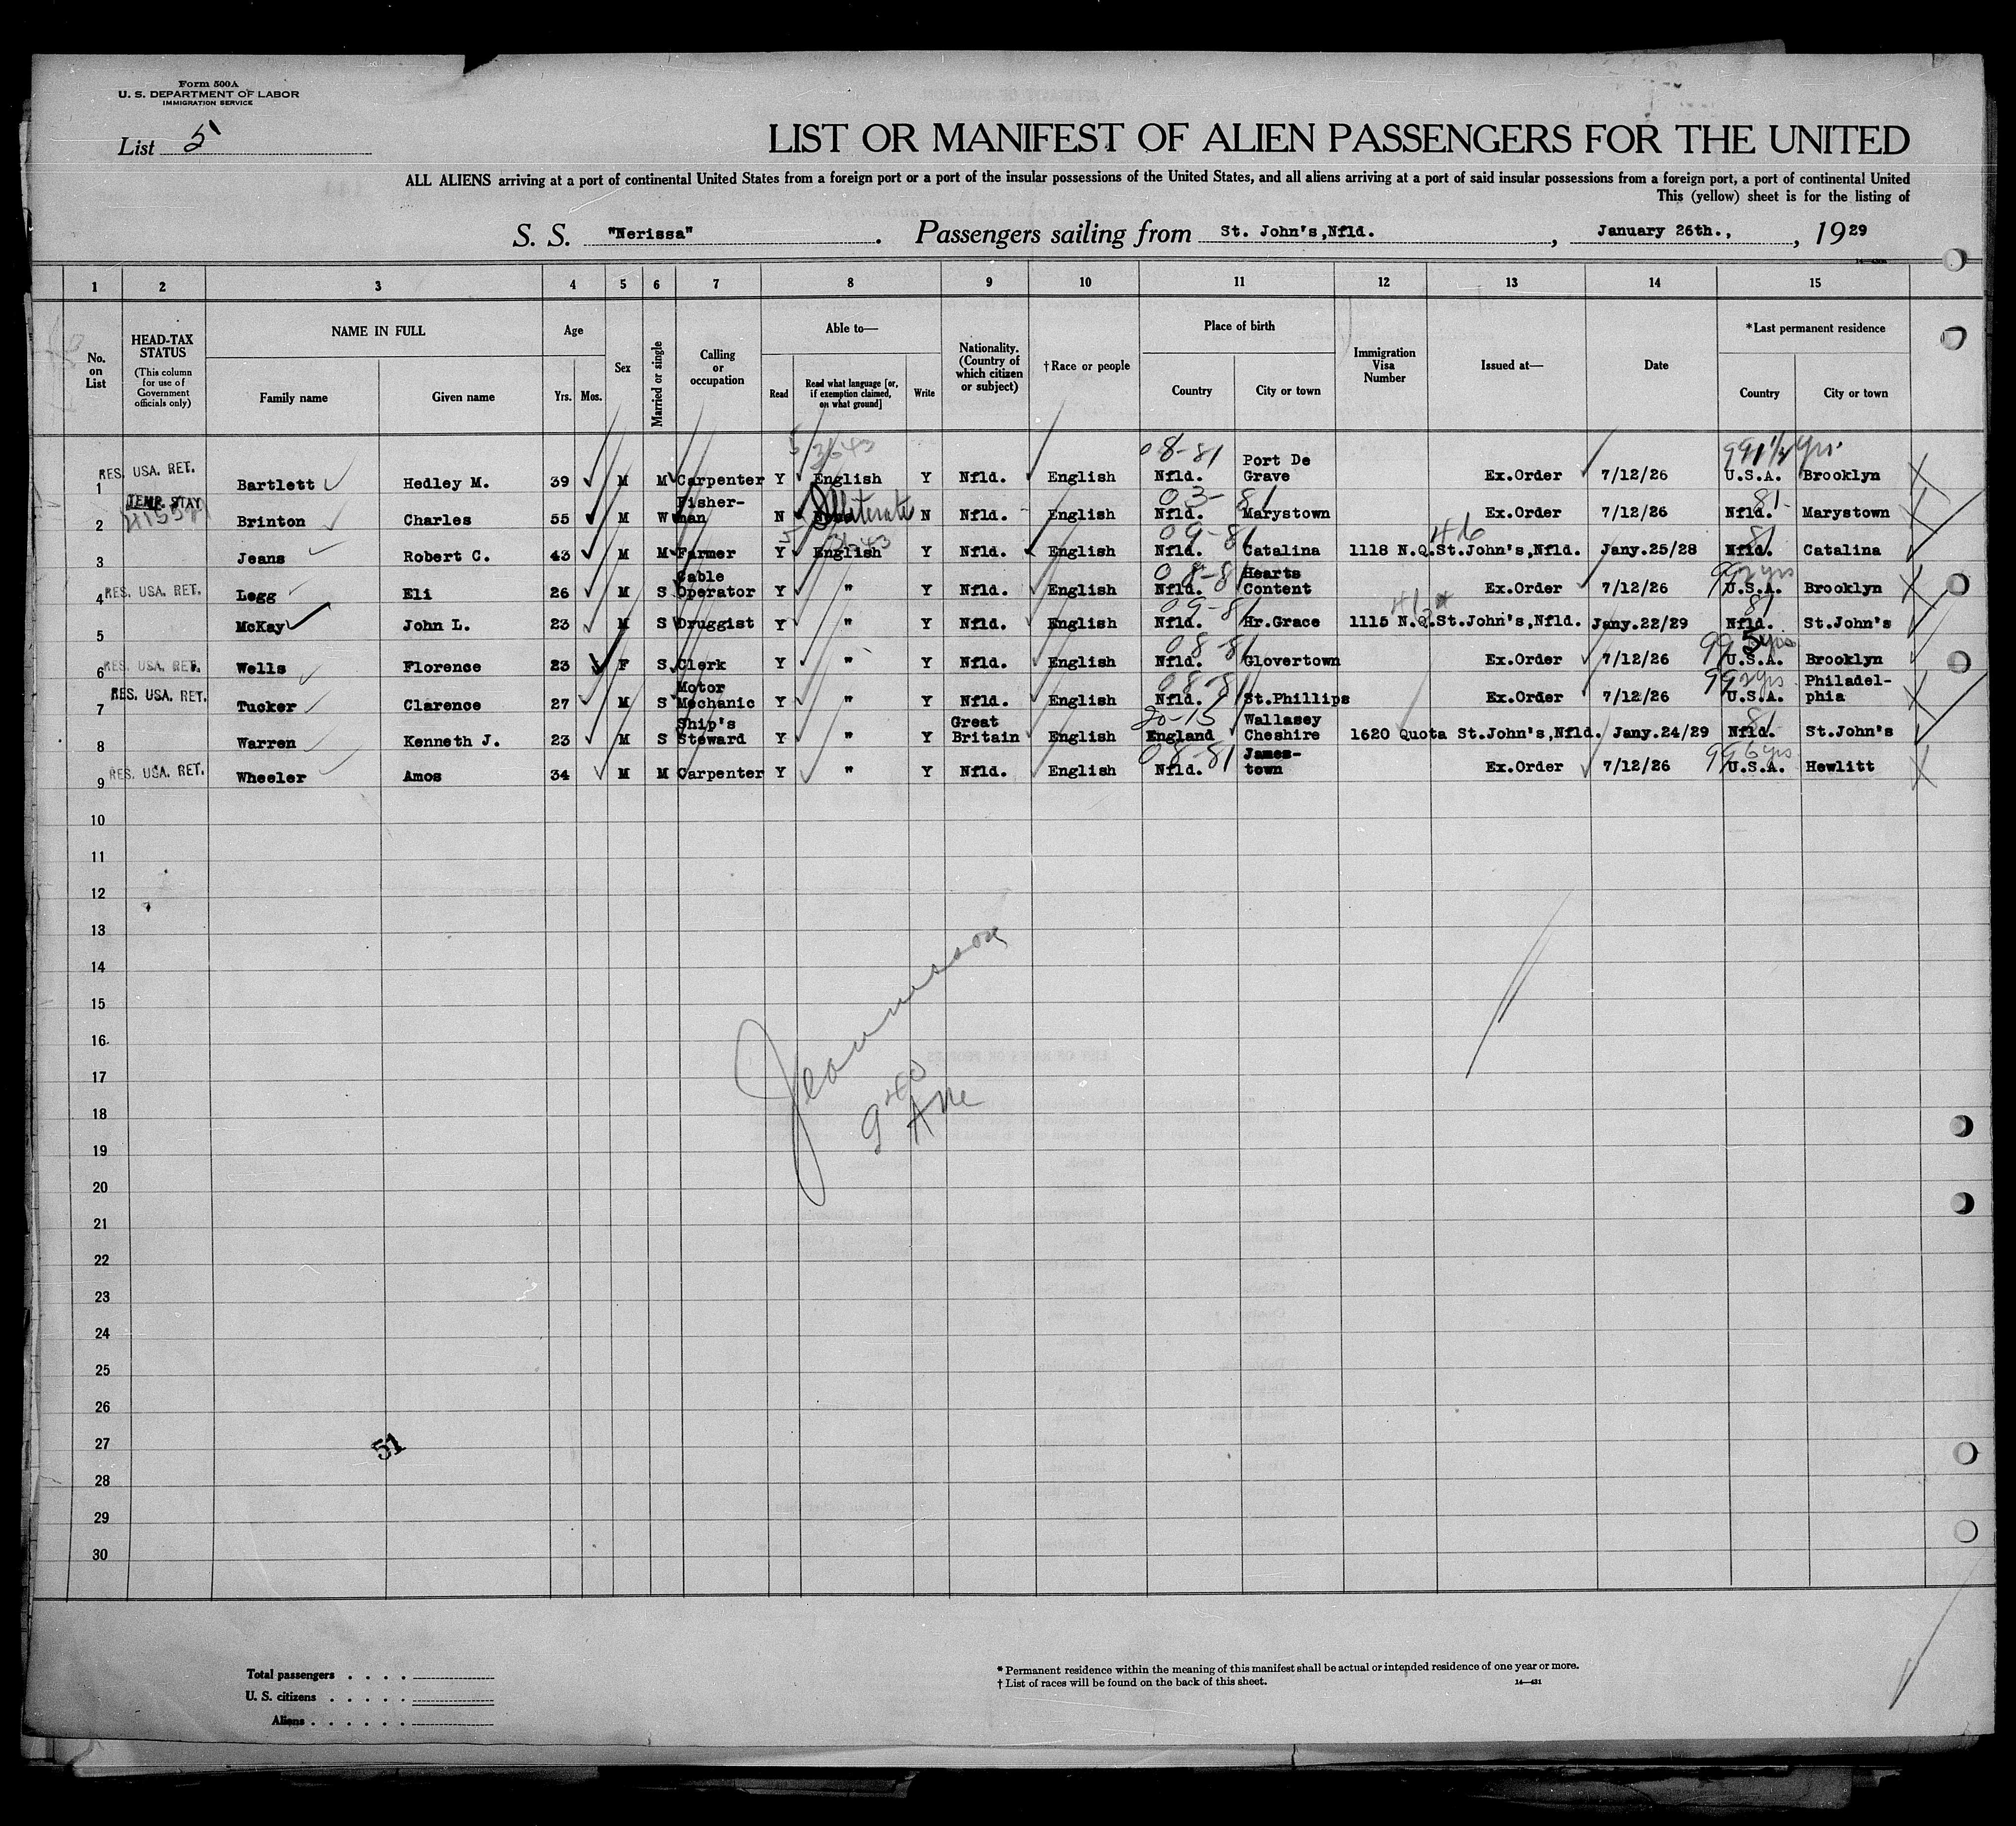 Form 500A
U. S. DEPARTMENT OF LABOR
IMMIGRATION SERVICE
List 5
LIST OR MANIFEST OF ALIEN PASSENGERS FOR THE UNITED
ALL ALIENS arriving at a port of continental United States from a foreign port or a port of the insular possessions of the United States, and all aliens arriving at a port of said insular possessions from a foreign port, a port of continental United
This (yellow) sheet is for the listing of
S. S. "Nerissa". Passengers sailing from St. John's,Nfld., January 26th., , 1929
1 2 3 4 5 6 7 8 9 10 11 12 13 14 15
No. on List
HEAD-TAX STATUS
(This column for use of Government officials only)
NAME IN FULL
Family name Given name
Age
Yrs. Mos.
Sex
Married or single
Calling or occupation
Able to—
Read
Read what language [or, if exemption claimed, on what ground]
Write
Nationality. (Country of which citizen or subject)
† Race or people
Place of birth
Country City or town
Immigration Visa Number
Issued at—
Date
*Last permanent residence
Country City or town
1 RES. USA. RET. Bartlett Hedley M. 39 M M Carpenter Y English Y Nfld. English 08-81 Nfld. Port De Grave Ex.Order 7/12/26 U.S.A. Brooklyn
2 TEMP. STAY Brinton Charles 55 M W Fisher-man N Illiterate N Nfld. English 03-81 Nfld. Marystown Ex.Order 7/12/26 81 Nfld. Marystown
3 Jeans Robert C. 43 M M Farmer Y English Y Nfld. English 09-81 Nfld. Catalina 1118 N.Q. St.John's,Nfld. Jany.25/28 81 Nfld. Catalina
4 RES. USA. RET. Legg Eli 26 M S Cable Operator Y " Y Nfld. English 08-81 Nfld. Hearts Content Ex.Order 7/12/26 99 2 yrs U.S.A. Brooklyn
5 McKay John L. 23 M S Druggist Y " Y Nfld. English 09-81 Nfld. Hr.Grace 1115 N.Q. St.John's,Nfld. Jany.22/29 81 Nfld. St.John's
6 RES. USA. RET. Wells Florence 23 F S Clerk Y " Y Nfld. English 08-81 Nfld. Glovertown Ex.Order 7/12/26 99 5 yrs U.S.A. Brooklyn
7 RES. USA. RET. Tucker Clarence 27 M S Motor Mechanic Y " Y Nfld. English 08-81 Nfld. St.Phillips Ex.Order 7/12/26 99 2 yrs U.S.A. Philadel-phia
8 Warren Kenneth J. 23 M S Ship's Steward Y " Y Great Britain English 20-15 England Wallasey Cheshire 1620 Quota St.John's,Nfld. Jany.24/29 81 Nfld. St.John's
9 RES. USA. RET. Wheeler Amos 34 M M Carpenter Y " Y Nfld. English 08-81 Nfld. James-town Ex.Order 7/12/26 99 6 yrs U.S.A. Hewlitt
10
11
12
13
14
15
16
17
18
19
20
21
22
23
24
25
26
27
28
29
30
940
51
Total passengers
U. S. citizens
Aliens
* Permanent residence within the meaning of this manifest shall be actual or intended residence of one year or more.
† List of races will be found on the back of this sheet.
14—431